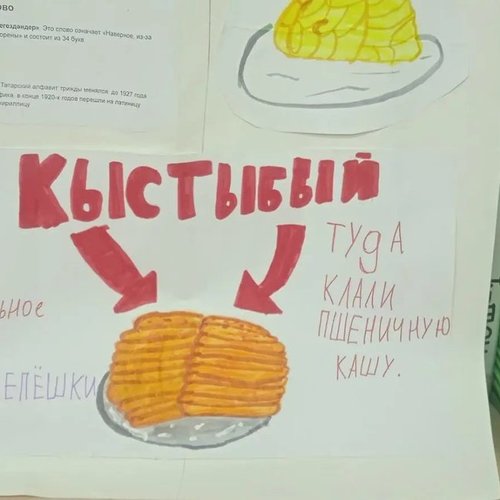 ово
егездандер». Это слово означает «Наверное, из-за
орены» и состоит из 34 букв
Татарский алфавит трижды менялся: до 1927 года
фика, в конце 1920-х годов перешли на латиницу
кириллицу
КЫСТЫБЫЙ
ТУДА
КЛАЛИ
ПШЕНИЧНУЮ
КАШУ.
ЬНОЕ
ЕПЁШКИ